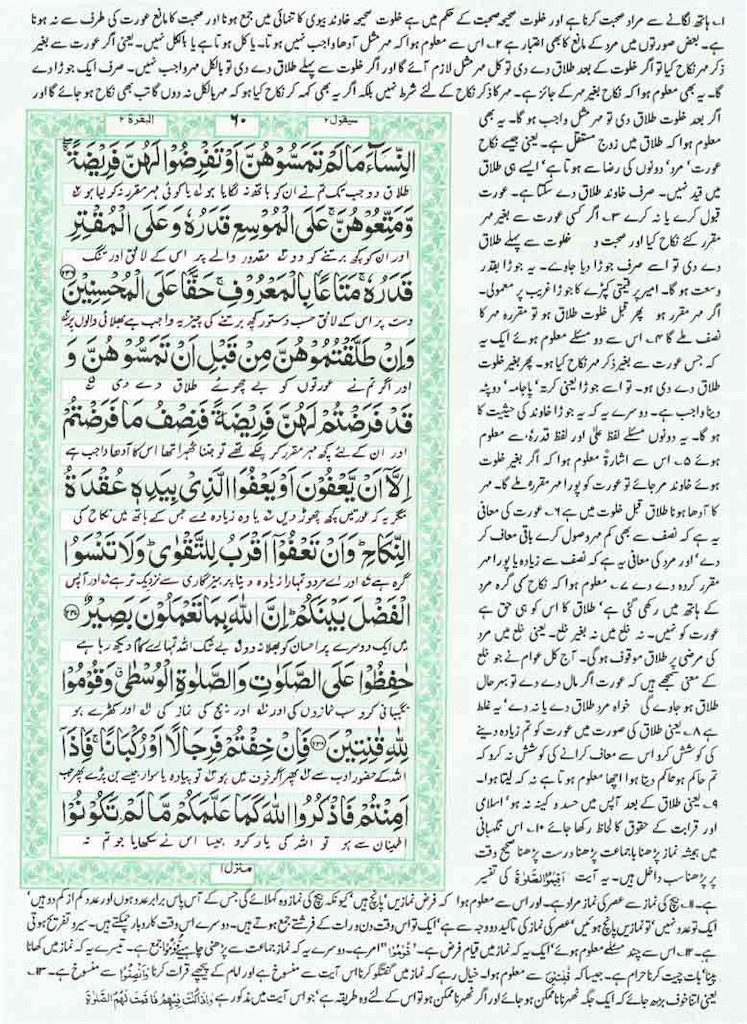 ۱۔ ہاتھ لگانے سے مراد صحبت کرنا ہے اور خلوت صحیحہ صحبت کے حکم میں ہے خلوت صحیحہ خاوند بیوی کا تنہائی میں جمع ہونا اور صحبت کا مانع عورت کی طرف سے نہ ہونا
ہے۔ بعض صورتوں میں مرد کے مانع کا بھی اعتبار ہے ۲۔ اس سے معلوم ہوا کہ مہر مثل آدھا واجب نہیں ہوتا۔ یا کل ہوتا ہے یا بالکل نہیں۔ یعنی اگر عورت سے بغیر
ذکر مہر نکاح کیا تو اگر خلوت کے بعد طلاق دے دی تو کل مہر مثل لازم آئے گا اور اگر خلوت سے پہلے طلاق دے دی تو بالکل مہر واجب نہیں۔ صرف ایک جوڑا دے
گا۔ یہ بھی معلوم ہوا کہ نکاح بغیر مہر کے جائز ہے۔ مہر کا ذکر نکاح کے لئے شرط نہیں بلکہ اگر یہ بھی کہہ کر نکاح کیا ہو کہ مہر بالکل نہ دوں گا تب بھی نکاح ہو جائے گا اور
اگر بعد خلوت طلاق دی تو مہر مثل واجب ہو گا۔ یہ بھی
معلوم ہوا کہ طلاق میں زوج مستقل ہے۔ یعنی جیسے نکاح
عورت' مرد' دونوں کی رضا سے ہوتا ہے' ایسے ہی طلاق
میں قید نہیں۔ صرف خاوند طلاق دے سکتا ہے۔ عورت
قبول کرے یا نہ کرے ۳۔ اگر کسی عورت سے بغیر مہر
مقرر کئے نکاح کیا اور صحبت و خلوت سے پہلے طلاق
دے دی تو اسے صرف جوڑا دیا جاوے۔ یہ جوڑا بقدر
وسعت ہو گا۔ امیر پر قیمتی کپڑے کا جوڑا غریب پر معمولی۔
اگر مہر مقرر ہو پھر قبل خلوت طلاق ہو تو مقررہ مہر کا
نصف ملے گا ۴۔ اس سے دو مسئلے معلوم ہوئے ایک یہ
کہ جس عورت سے بغیر ذکر مہر نکاح کیا ہو۔ پھر بغیر خلوت
طلاق دے دی ہو۔ تو اسے جوڑا یعنی کرتہ' پاجامہ' دوپٹہ
دینا واجب ہے۔ دوسرے یہ کہ یہ جوڑا خاوند کی حیثیت کا
ہو گا۔ یہ دونوں مسئلے لفظ علیٰ اور لفظ قدرہٗ سے معلوم
ہوئے ۵۔ اس سے اشارۃً معلوم ہوا کہ اگر بغیر خلوت
ہوئے خاوند مر جائے تو عورت کو پورا مہر مقررہ ملے گا۔ مہر
کا آدھا ہونا طلاق قبل خلوت میں ہے ۶۔ عورت کی معافی
یہ ہے کہ نصف سے بھی کم مہر وصول کرے باقی معاف کر
دے' اور مرد کی معافی یہ ہے کہ نصف سے زیادہ یا پورا مہر
مقرر کردہ دے دے ۷۔ معلوم ہوا کہ نکاح کی گرہ مرد
کے ہاتھ میں رکھی گئی ہے' طلاق کا اس کو ہی حق ہے
عورت کو نہیں۔ نہ خلع میں نہ بغیر خلع۔ یعنی خلع میں مرد
کی مرضی پر طلاق موقوف ہو گی۔ آج کل عوام نے جو خلع
کے معنی سمجھے ہیں کہ عورت اگر مال دے دے تو بہرحال
طلاق ہو جاوے گی خواہ مرد طلاق دے یا نہ دے' یہ غلط
ہے ۸۔ یعنی طلاق کی صورت میں عورت کو تم زیادہ دینے
کی کوشش کرو اس سے معاف کرانے کی کوشش نہ کرو کہ
تم حاکم ہو حاکم دیتا ہوا اچھا معلوم ہوتا ہے نہ کہ لیتا ہوا۔
۹۔ یعنی طلاق کے بعد آپس میں حسد و کینہ نہ ہو' اسلامی
اور قرابت کے حقوق کا لحاظ رکھا جائے ۱۰۔ اس نگہبانی
میں ہمیشہ نماز پڑھنا باجماعت پڑھنا درست پڑھنا صحیح وقت
پر پڑھنا سب داخل ہیں۔ یہ آیت اَقِيْمُوا الصَّلٰوةَ کی تفسیر
سیقول ۲ ۶۰ البقرۃ ۲
النِّسَآءَ مَا لَمْ تَمَسُّوْهُنَّ اَوْ تَفْرِضُوْا لَهُنَّ فَرِيْضَةً ۖ
طلاق دو جب تک تم نے ان کو ہاتھ نہ لگایا ہو یا کوئی مہر مقرر نہ کر لیا ہو
وَّمَتِّعُوْهُنَّ ۚ عَلَى الْمُوْسِعِ قَدَرُهٗ وَعَلَى الْمُقْتِرِ
اور ان کو کچھ برتنے کو دو مقدور والے پر اس کے لائق اور تنگ
قَدَرُهٗ ۚ مَتَاعًۢا بِالْمَعْرُوْفِ ۚ حَقًّا عَلَى الْمُحْسِنِيْنَ ﴿۲۳۶﴾
دست پر اس کے لائق حسب دستور کچھ برتنے کی چیز یہ واجب ہے بھلائی والوں پر
وَاِنْ طَلَّقْتُمُوْهُنَّ مِنْ قَبْلِ اَنْ تَمَسُّوْهُنَّ وَ
اور اگر تم نے عورتوں کو بے چھوئے طلاق دے دی
قَدْ فَرَضْتُمْ لَهُنَّ فَرِيْضَةً فَنِصْفُ مَا فَرَضْتُمْ
اور ان کے لئے کچھ مہر مقرر کر چکے تھے تو جتنا ٹھہرا تھا اس کا آدھا واجب ہے
اِلَّاۤ اَنْ يَّعْفُوْنَ اَوْ يَعْفُوَا الَّذِيْ بِيَدِهٖ عُقْدَةُ
مگر یہ کہ عورتیں کچھ چھوڑ دیں یا وہ زیادہ دے جس کے ہاتھ میں نکاح کی
النِّكَاحِ ؕ وَاَنْ تَعْفُوْۤا اَقْرَبُ لِلتَّقْوٰى ؕ وَلَا تَنْسَوُا
گرہ ہے اور اے مردو تمہارا زیادہ دینا پرہیزگاری سے نزدیک تر ہے اور آپس
الْفَضْلَ بَيْنَكُمْ ؕ اِنَّ اللّٰهَ بِمَا تَعْمَلُوْنَ بَصِيْرٌ ﴿۲۳۷﴾
میں ایک دوسرے پر احسان کو بھلا نہ دو بے شک اللہ تمہارے کام دیکھ رہا ہے
حٰفِظُوْا عَلَى الصَّلَوٰتِ وَالصَّلٰوةِ الْوُسْطٰى ۗ وَقُوْمُوْا
نگہبانی کرو سب نمازوں کی اور بیچ کی نماز کی اور کھڑے ہو
لِلّٰهِ قٰنِتِيْنَ ﴿۲۳۸﴾ فَاِنْ خِفْتُمْ فَرِجَالًا اَوْ رُكْبَانًا ۚ فَاِذَاۤ
اللہ کے حضور ادب سے پھر اگر خوف میں ہو تو پیادہ یا سوار جیسے بن پڑے پھر جب
اَمِنْتُمْ فَاذْكُرُوا اللّٰهَ كَمَا عَلَّمَكُمْ مَّا لَمْ تَكُوْنُوْا
اطمینان سے ہو تو اللہ کی یاد کرو جیسا اس نے سکھایا جو تم نہ
منزل ۱
ہے۔ ۱۱۔ بیچ کی نماز سے عصر کی نماز مراد ہے۔ اور اس سے معلوم ہوا کہ فرض نمازیں' پانچ ہیں' کیونکہ بیچ کی نماز وہ کہلائے گی جس کے آس پاس برابر عدد ہوں اور عدد کم از کم دو ہیں'
ایک تو عدد نہیں' تو نمازیں پانچ ہوئیں' عصر کی نماز کی تاکید دو وجہ سے ہے' ایک تو اس وقت دن و رات کے فرشتے جمع ہوتے ہیں۔ دوسرے اس وقت کاروبار چمکتے ہیں۔ سیر و تفریح ہوتی
ہے۔ ۱۲۔ اس سے چند مسئلے معلوم ہوئے' ایک یہ کہ نماز میں قیام فرض ہے۔ ' قُوْمُوْا ' امر ہے۔ دوسرے یہ کہ نماز جماعت سے پڑھنی چاہیے قُوْمُوْا جمع ہے۔ تیسرے یہ کہ نماز میں کھانا
پینا' بات چیت کرنا حرام ہے۔ جیسا کہ قٰنِتِيْنَ سے معلوم ہوا۔ خیال رہے کہ نماز میں گفتگو کرنا اس آیت سے منسوخ ہے اور امام کے پیچھے قرات کرنا وَاَنْصِتُوْا سے منسوخ ہے۔ ۱۳۔
یعنی اتنا خوف بڑھ جائے کہ ایک جگہ ٹھہرنا ناممکن ہو جائے اور اگر ٹھہرنا ممکن ہو تو اس کے لئے وہ طریقہ ہے' جو اس آیت میں مذکور ہے وَاِذَا كُنْتَ فِيْهِمْ فَاَقَمْتَ لَهُمُ الصَّلٰوةَ